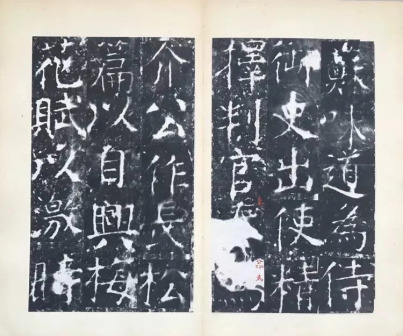 蘇味道為侍
御史出使精
擇判官為
介公作長松
篇以自興梅
花賦以激時